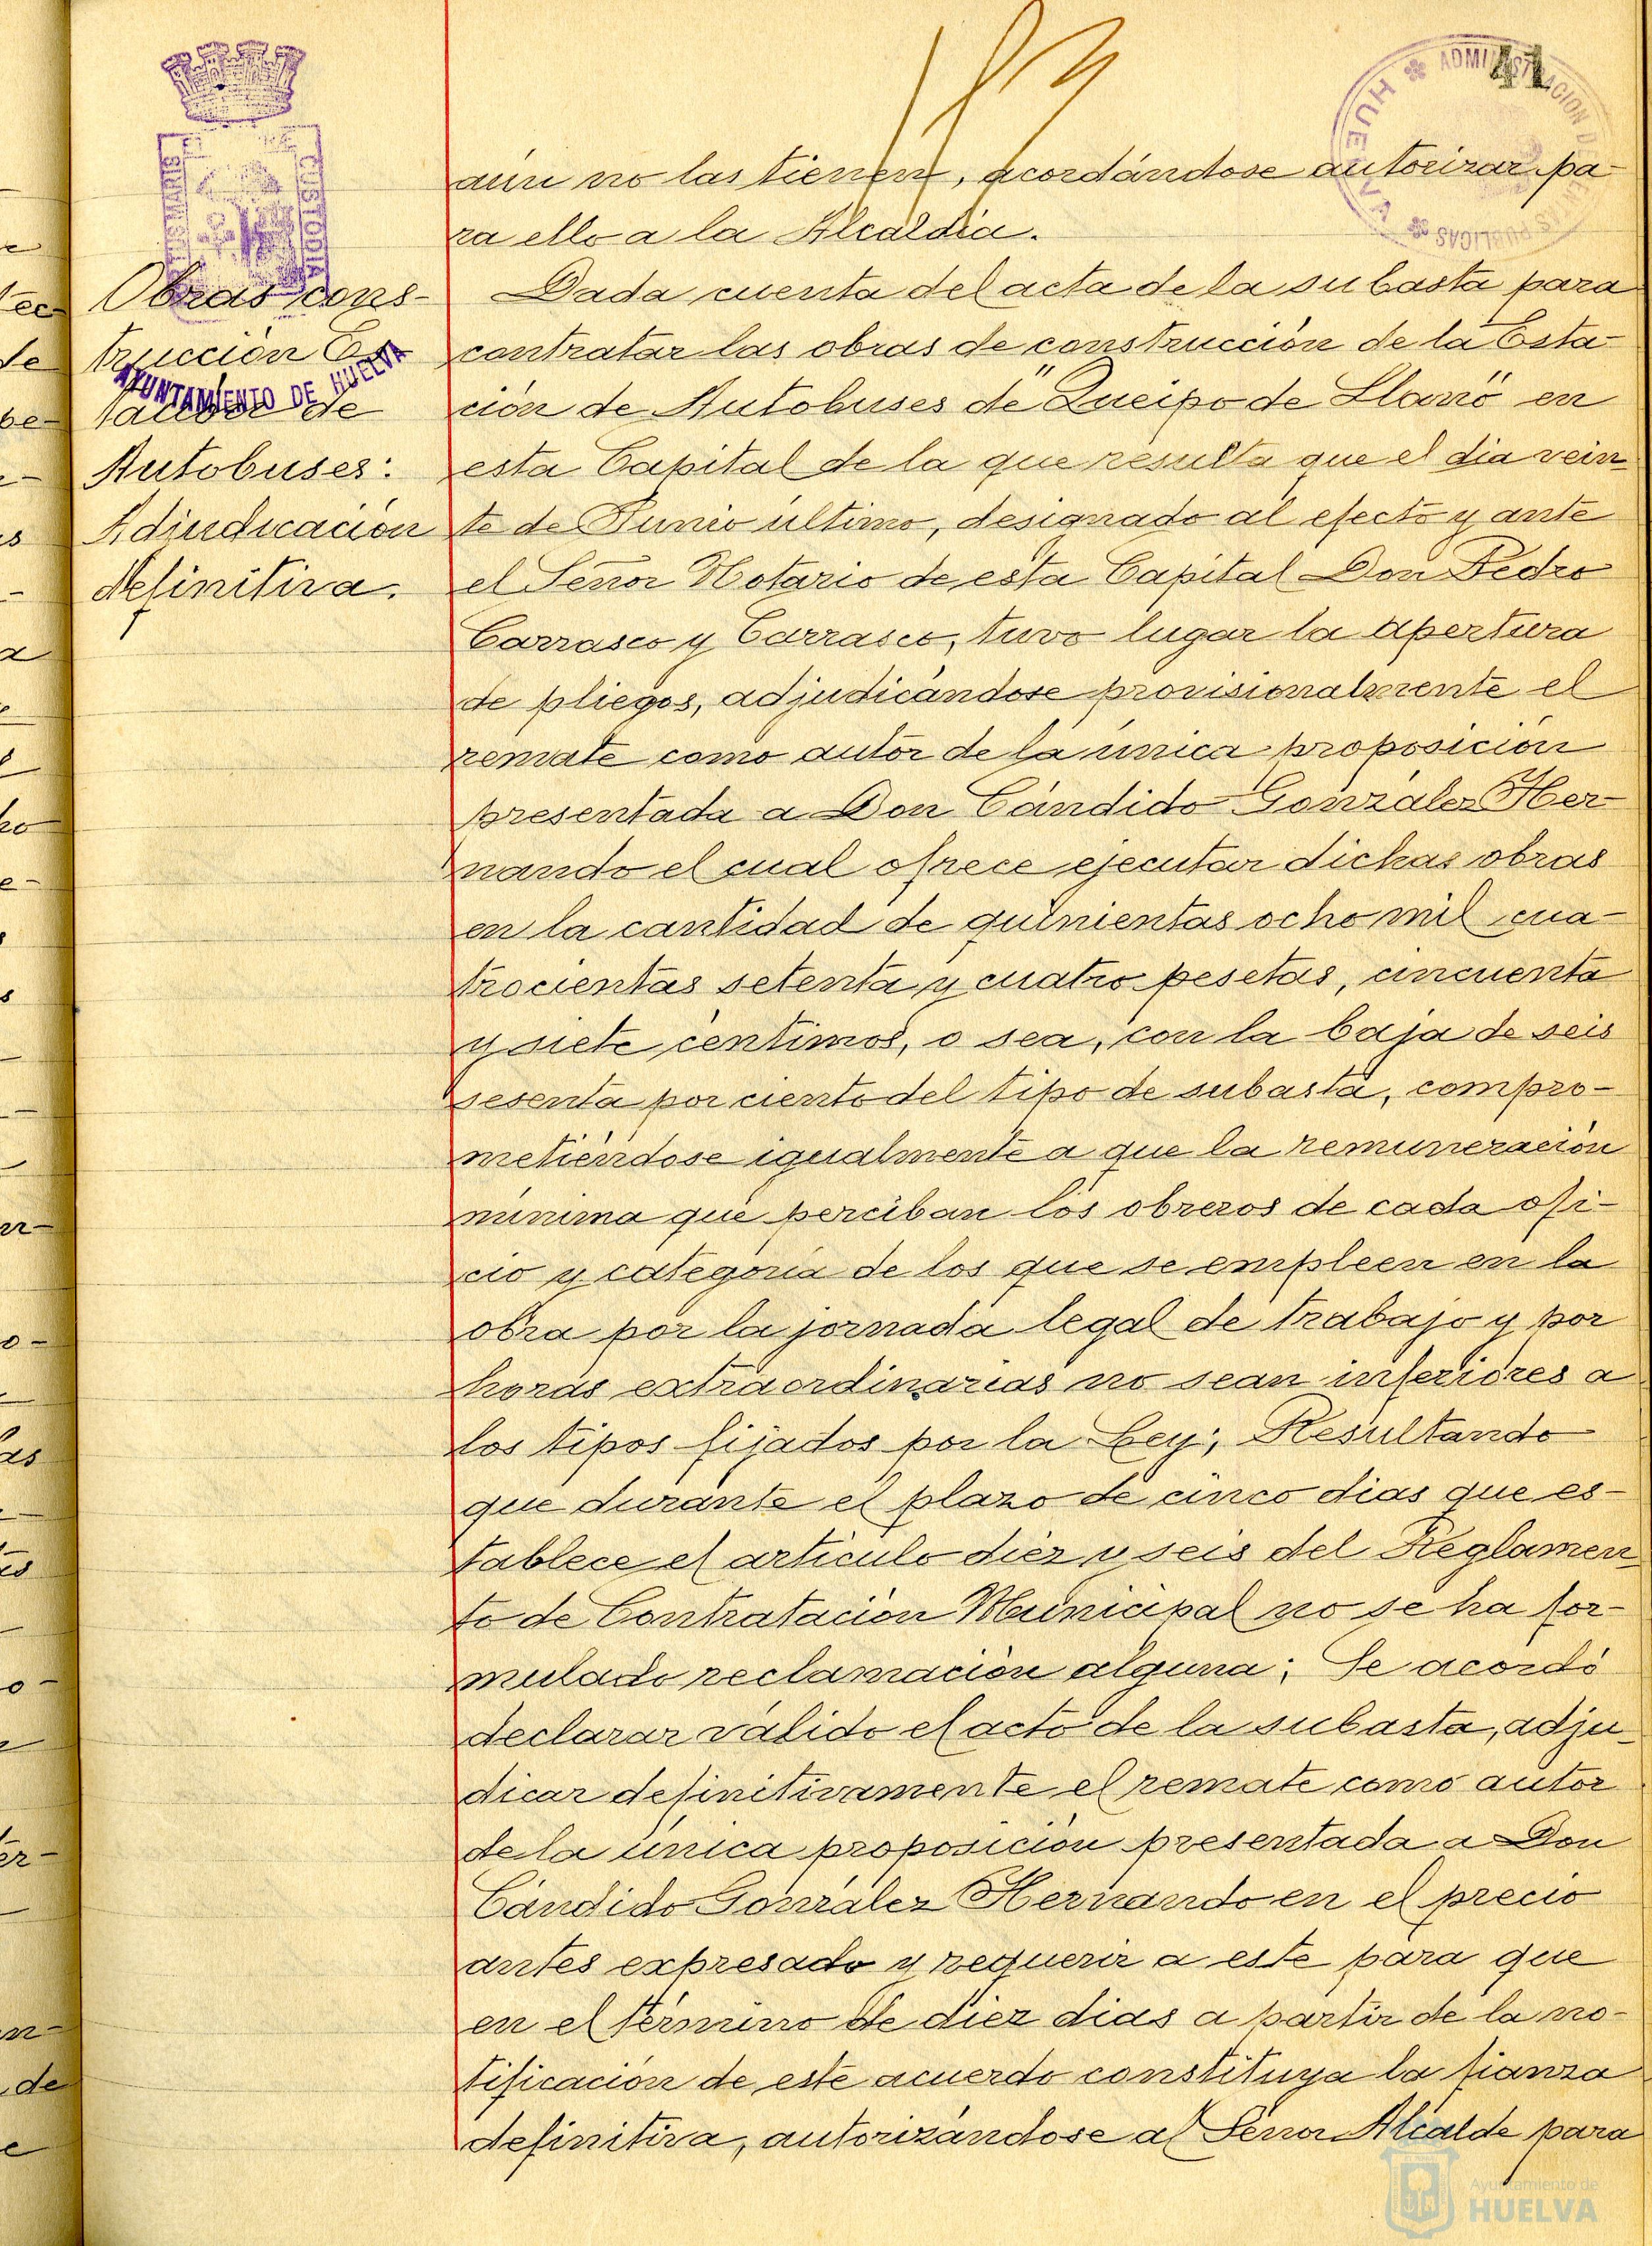 41
HUELVA ADMINISTRACION DE RENTAS PUBLICAS
CUSTODIA
AYUNTAMIENTO DE HUELVA
Obras cons-
trucción Es
tación de
Autobuses:
Adjudicación
definitiva.
aún no las tienen, acordándose autorizar pa-
ra ello a la Alcaldía.
Dada cuenta del acta de la subasta para
contratar las obras de construcción de la Esta-
ción de Autobuses de "Queipo de Llano" en
esta Capital de la que resulta que el dia vein
te de Junio último, designado al efecto y ante
el Señor Notario de esta Capital Don Pedro
Carrasco y Carrasco, tuvo lugar la apertura
de pliegos, adjudicándose provisionalmente el
remate como autor de la única proposición
presentada a Don Cándido González Her-
nando el cual ofrece ejecutar dichas obras
en la cantidad de quinientas ocho mil cua-
trocientas setenta y cuatro pesetas, cincuenta
y siete céntimos, o sea, con la baja de seis
sesenta por ciento del tipo de subasta, compro-
metiéndose igualmente a que la remuneración
mínima que perciban los obreros de cada ofi-
cio y categoría de los que se empleen en la
obra por la jornada legal de trabajo y por
horas extraordinarias no sean inferiores a
los tipos fijados por la Ley; Resultando
que durante el plazo de cinco dias que es-
tablece el artículo diez y seis del Reglamen
to de Contratación Municipal no se ha for-
mulado reclamación alguna; Se acordó
declarar válido el acto de la subasta, adju-
dicar definitivamente el remate como autor
de la única proposición presentada a Don
Cándido González Hernando en el precio
antes expresado y requerir a este para que
en el término de diez dias a partir de la no-
tificación de este acuerdo constituya la fianza
definitiva, autorizándose al Señor Alcalde para
Ayuntamiento de
HUELVA